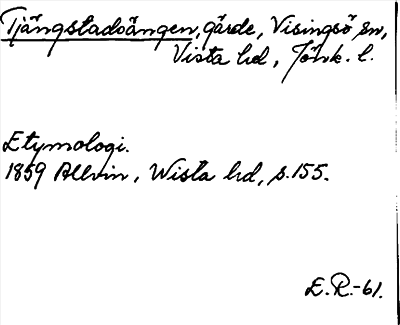 Tjängstadsängen, gärde, Visingsö sn,
Vista hd, Jönk. l.
Etymologi.
1859 Allvin, Wista hd, s. 155.
E.R.-61.